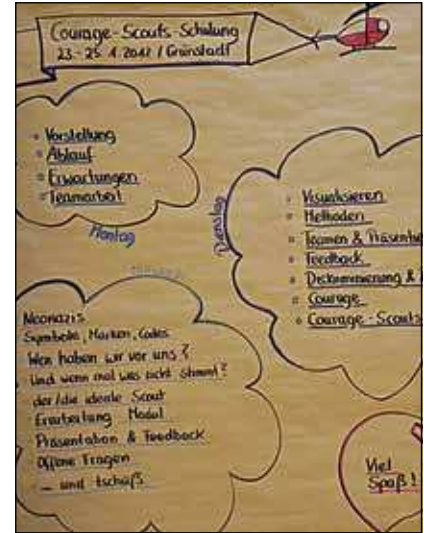 Courage-Scouts-Schulung
23.-25.1.2012 / Grünstadt
Vorstellung
Ablauf
Erwartungen
Teamarbeit
Montag
Dienstag
Visualisieren
Methoden
Teamen & Präsentie
Feedback
Diskriminierung &
Courage
Courage-Scouts
Neonazis
Symbole, Marken, Codes
Wen haben wir vor uns?
Und wenn mal was nicht stimmt?
der/die ideale Scout
Erarbeitung Modul
Präsentation & Feedback
Offene Fragen
... und tschüß
Viel
Spaß!